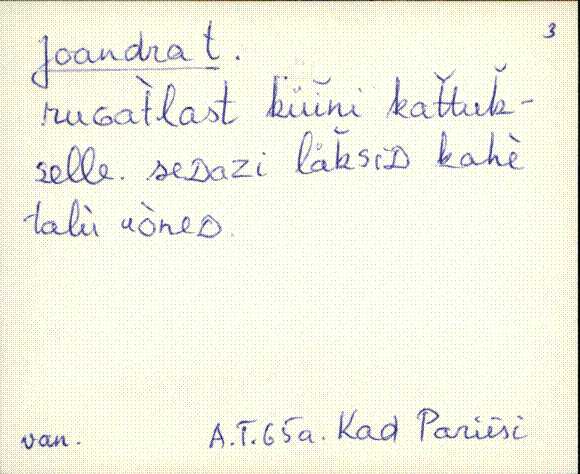 3
joandra t.
rugaťlast küüni kaťtuk-
selle. seDazi läksiD kahè
talù uòneD.
van. A.T. 65a. Kad Pariisi